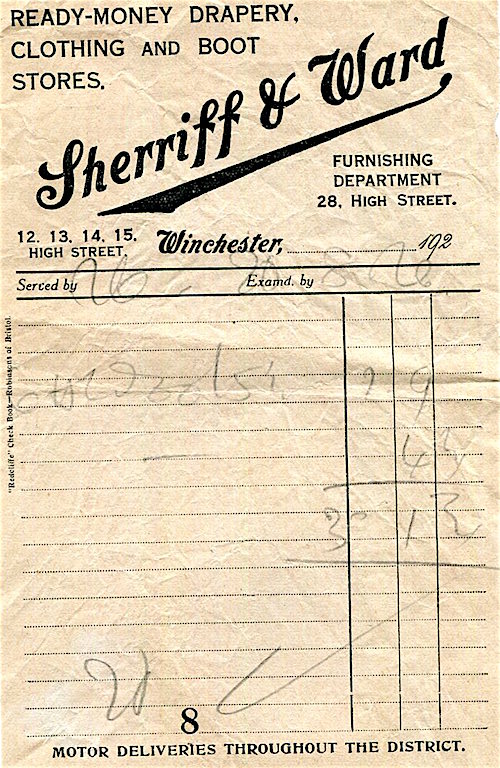 READY-MONEY DRAPERY,
CLOTHING AND BOOT
STORES.
Sherriff & Ward
FURNISHING
DEPARTMENT
28, HIGH STREET.
12, 13, 14, 15,
HIGH STREET.
Winchester, 192
Served by Examd. by
"Redcliffe" Check Book—Robinsons of Bristol.
9
4
3 1
8
MOTOR DELIVERIES THROUGHOUT THE DISTRICT.